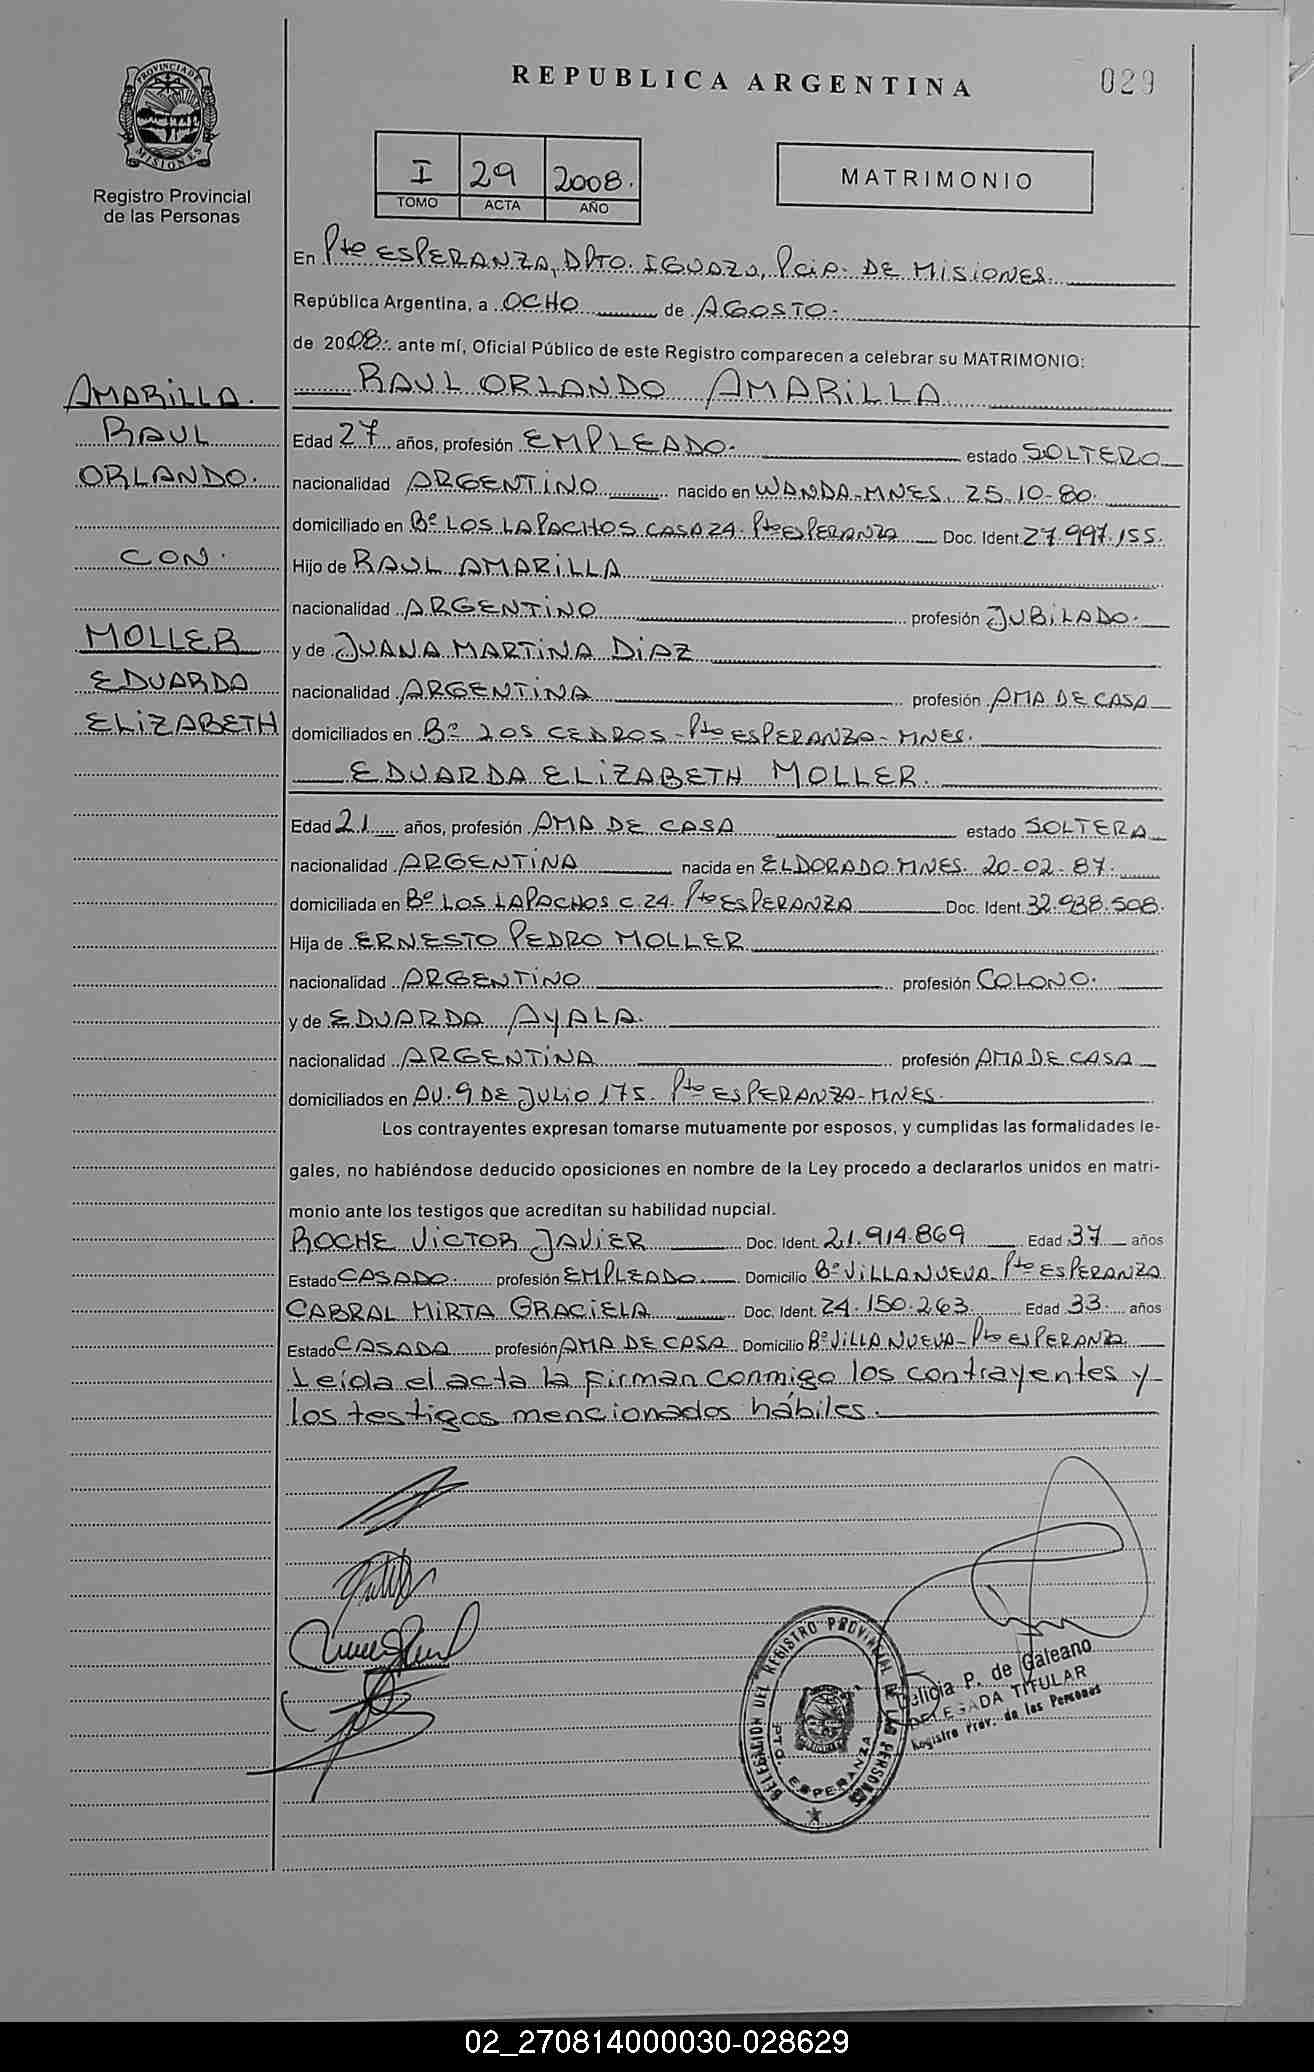 PROVINCIA DE
MISIONES
Registro Provincial
de las Personas
REPUBLICA ARGENTINA
029
I 29 2008.
TOMO ACTA AÑO
MATRIMONIO
En Pto ESPERANZA, DPTO. IGUAZU, PciA. DE MISIONES.
República Argentina, a OCHO de AGOSTO.
de 2008. ante mí, Oficial Público de este Registro comparecen a celebrar su MATRIMONIO:
AMARILLA.
RAUL
ORLANDO.
CON.
MOLLER
EDUARDA
ELIZABETH
RAUL ORLANDO AMARILLA
Edad 27 años, profesión EMPLEADO. estado SOLTERO
nacionalidad ARGENTINO nacido en WANDA-MNES. 25-10-80.
domiciliado en Bº LOS LAPACHOS CASA 24. Pto ESPERANZA Doc. Ident. 27.997.155.
Hijo de RAUL AMARILLA
nacionalidad ARGENTINO profesión JUBILADO.
y de JUANA MARTINA DIAZ
nacionalidad ARGENTINA profesión AMA DE CASA
domiciliados en Bº LOS CEDROS - Pto ESPERANZA - MNES.
EDUARDA ELIZABETH MOLLER.
Edad 21 años, profesión AMA DE CASA estado SOLTERA
nacionalidad ARGENTINA nacida en ELDORADO.MNES. 20-02-87.
domiciliada en Bº LOS LAPACHOS C.24. Pto ESPERANZA Doc. Ident. 32.938.508.
Hija de ERNESTO PEDRO MOLLER
nacionalidad ARGENTINO profesión COLONO.
y de EDUARDA AYALA.
nacionalidad ARGENTINA profesión AMA DE CASA
domiciliados en AV. 9 DE JULIO 175. Pto ESPERANZA-MNES.
Los contrayentes expresan tomarse mutuamente por esposos, y cumplidas las formalidades le-
gales, no habiéndose deducido oposiciones en nombre de la Ley procedo a declararlos unidos en matri-
monio ante los testigos que acreditan su habilidad nupcial.
ROCHE VICTOR JAVIER Doc. Ident. 21.914.869 Edad 37 años
Estado CASADO. profesión EMPLEADO. Domicilio Bº VILLA NUEVA. Pto ESPERANZA
CABRAL MIRTA GRACIELA Doc. Ident. 24.150.263. Edad 33 años
Estado CASADA profesión AMA DE CASA Domicilio Bº VILLA NUEVA - Pto ESPERANZA.
Leída el acta la firman conmigo los contrayentes y
los testigos mencionados hábiles.
DELEGACION DEL REGISTRO PROVINCIAL DE LAS PERSONAS
PTO. ESPERANZA
Delicia P. de Galeano
DELEGADA TITULAR
Registro Prov. de las Personas
02_270814000030-028629